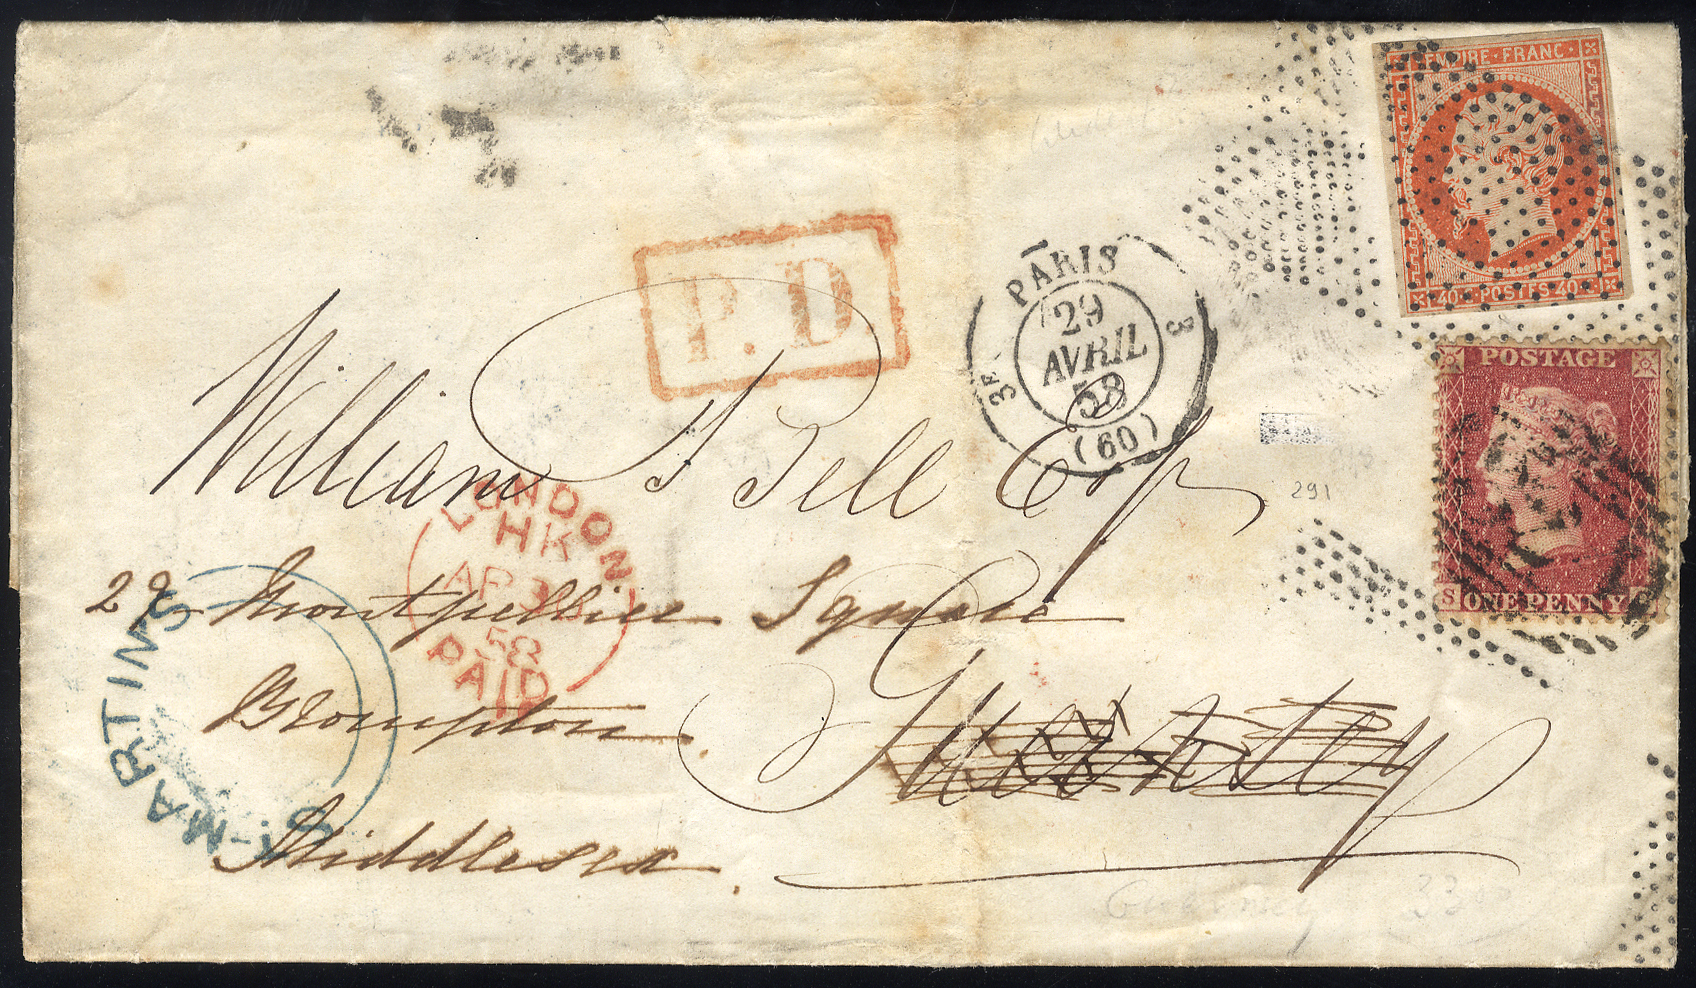 EMPIRE · FRANC ·
40 · POSTES · 40
POSTAGE
S ONE PENNY
P.D.
PARIS
3E
29
AVRIL
58
(60)
William A Bell Esq
291
LONDON
HK
AP 30
58
PAID
29 Montpellier Square
Brompton.
Guernsey
Middlesex.
ST-MARTINS
Guernsey